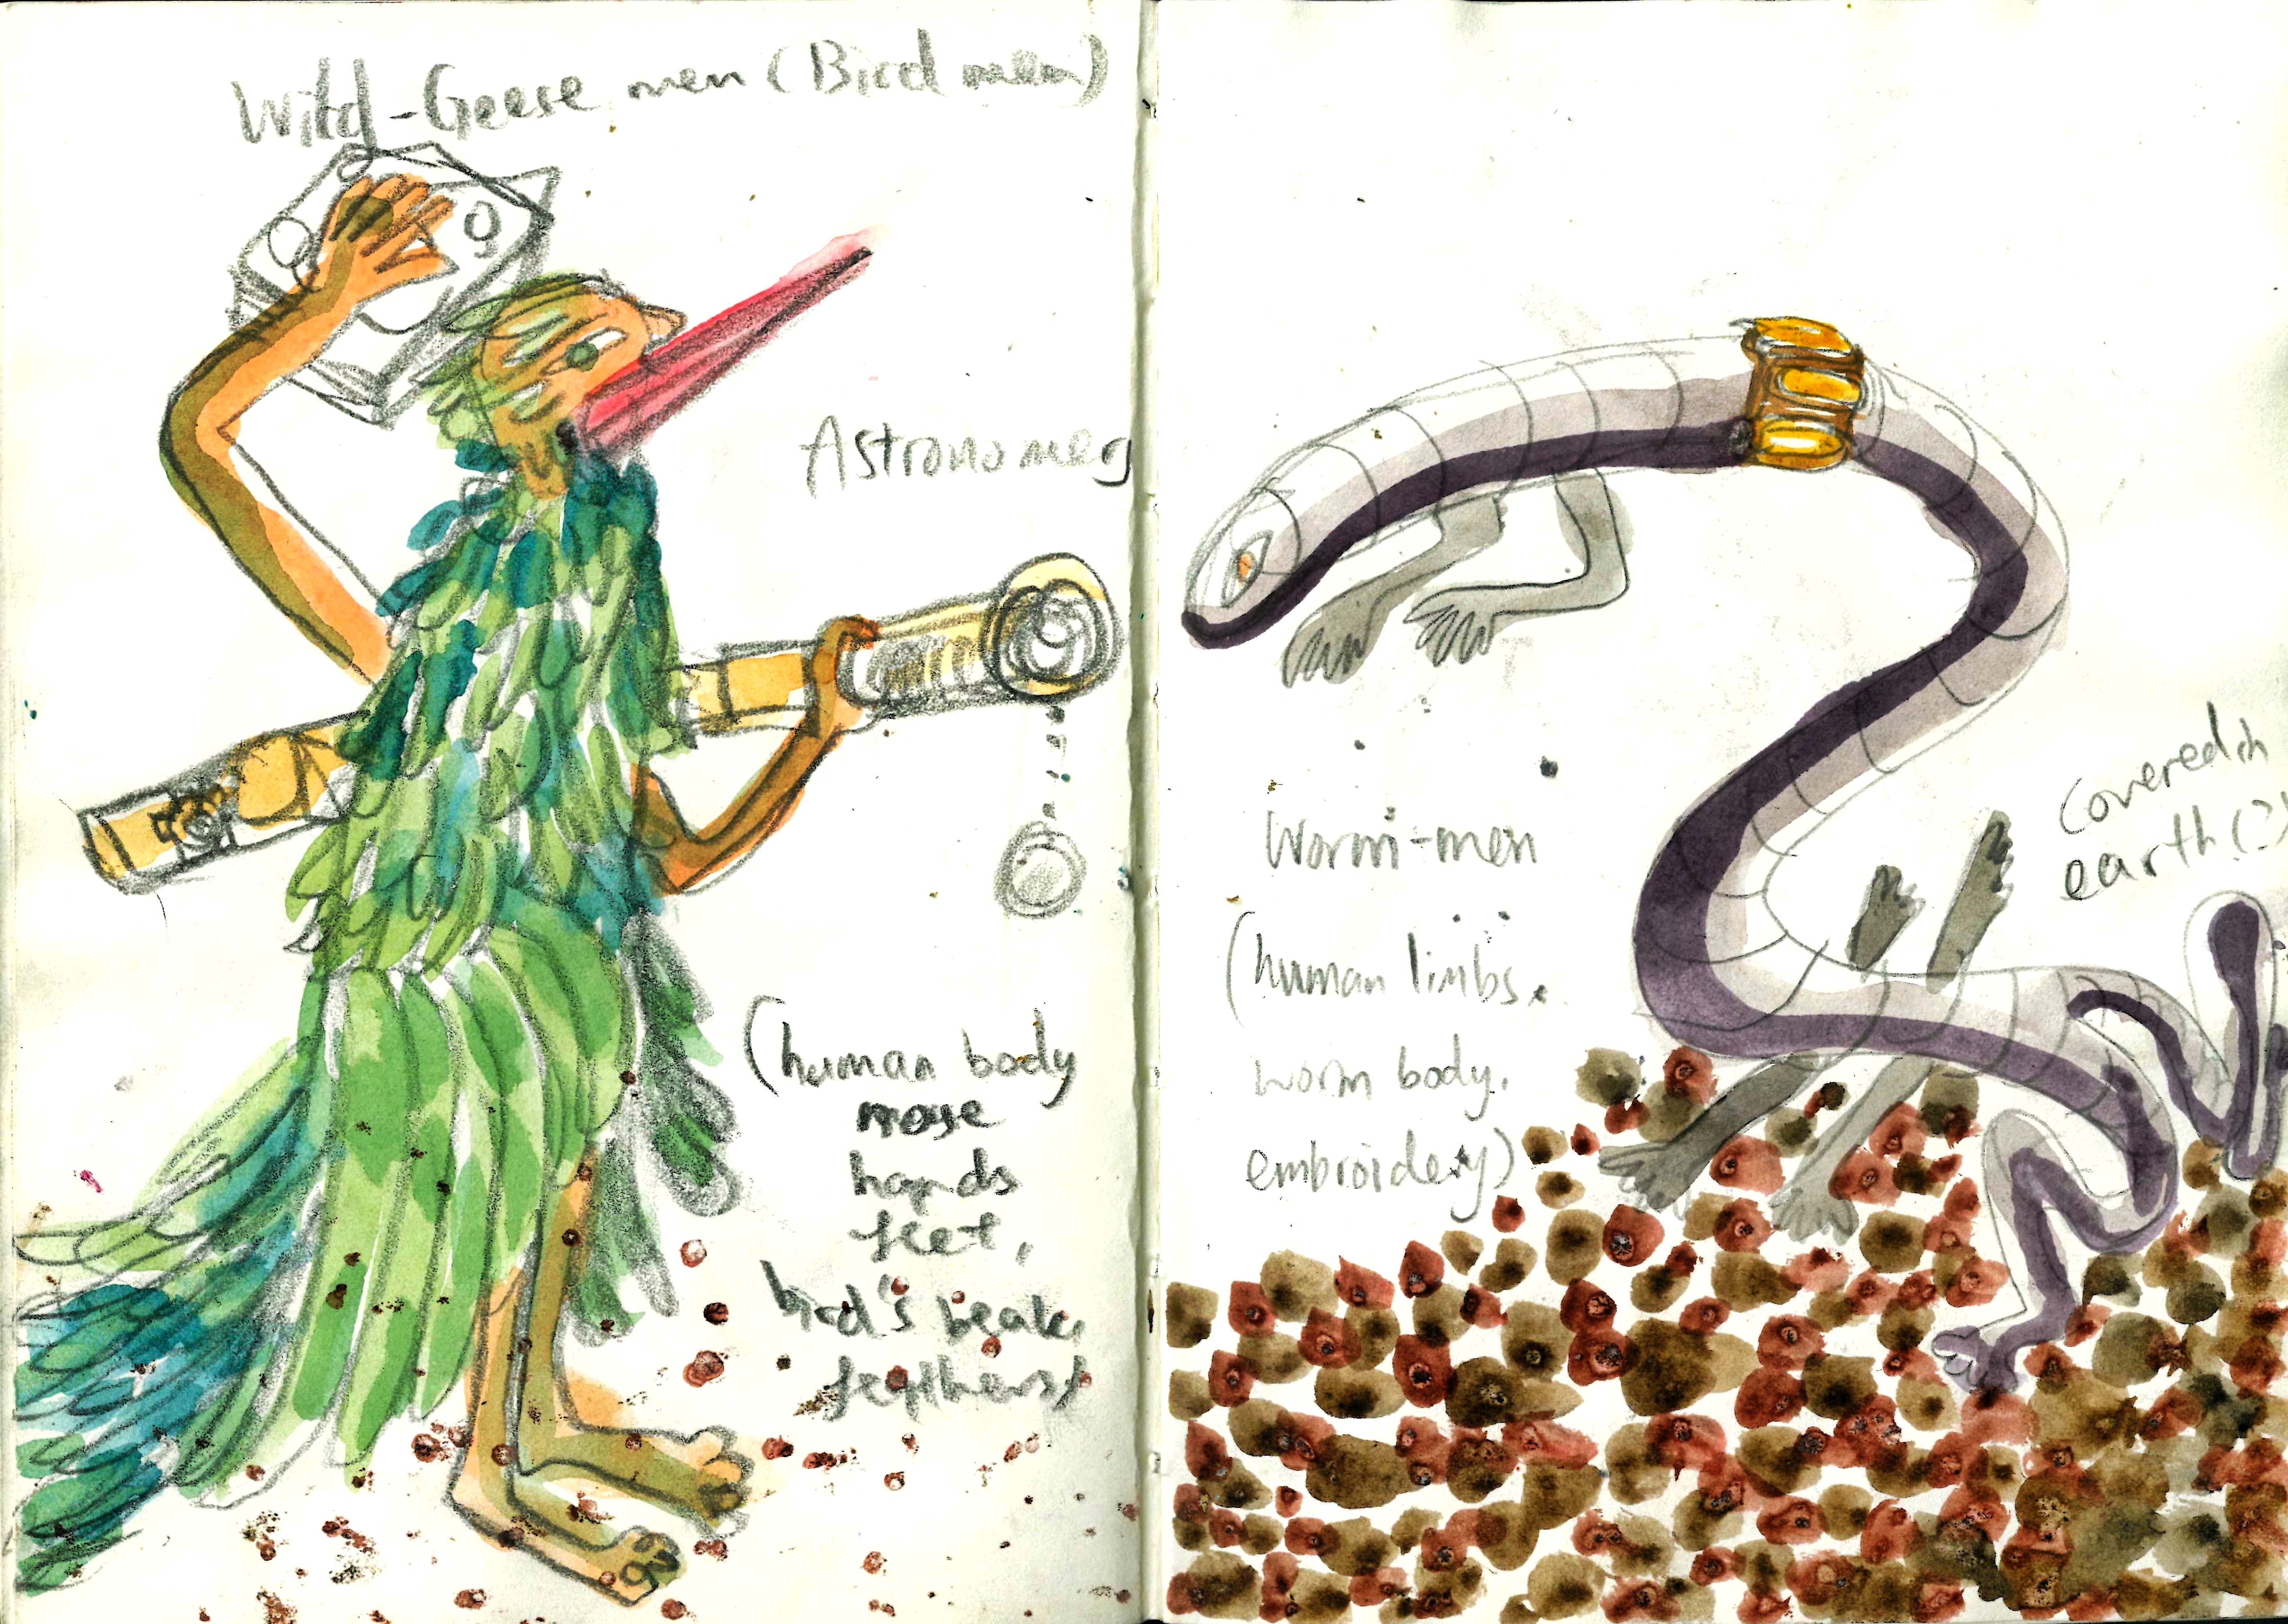 Wild-Geese men (Bird men)
Astronomers
(human body
nose
hands
feet,
bird's beak,
feathers)
Worm-men
(human limbs.
worm body.
embroidery)
Covered in
earth (?)